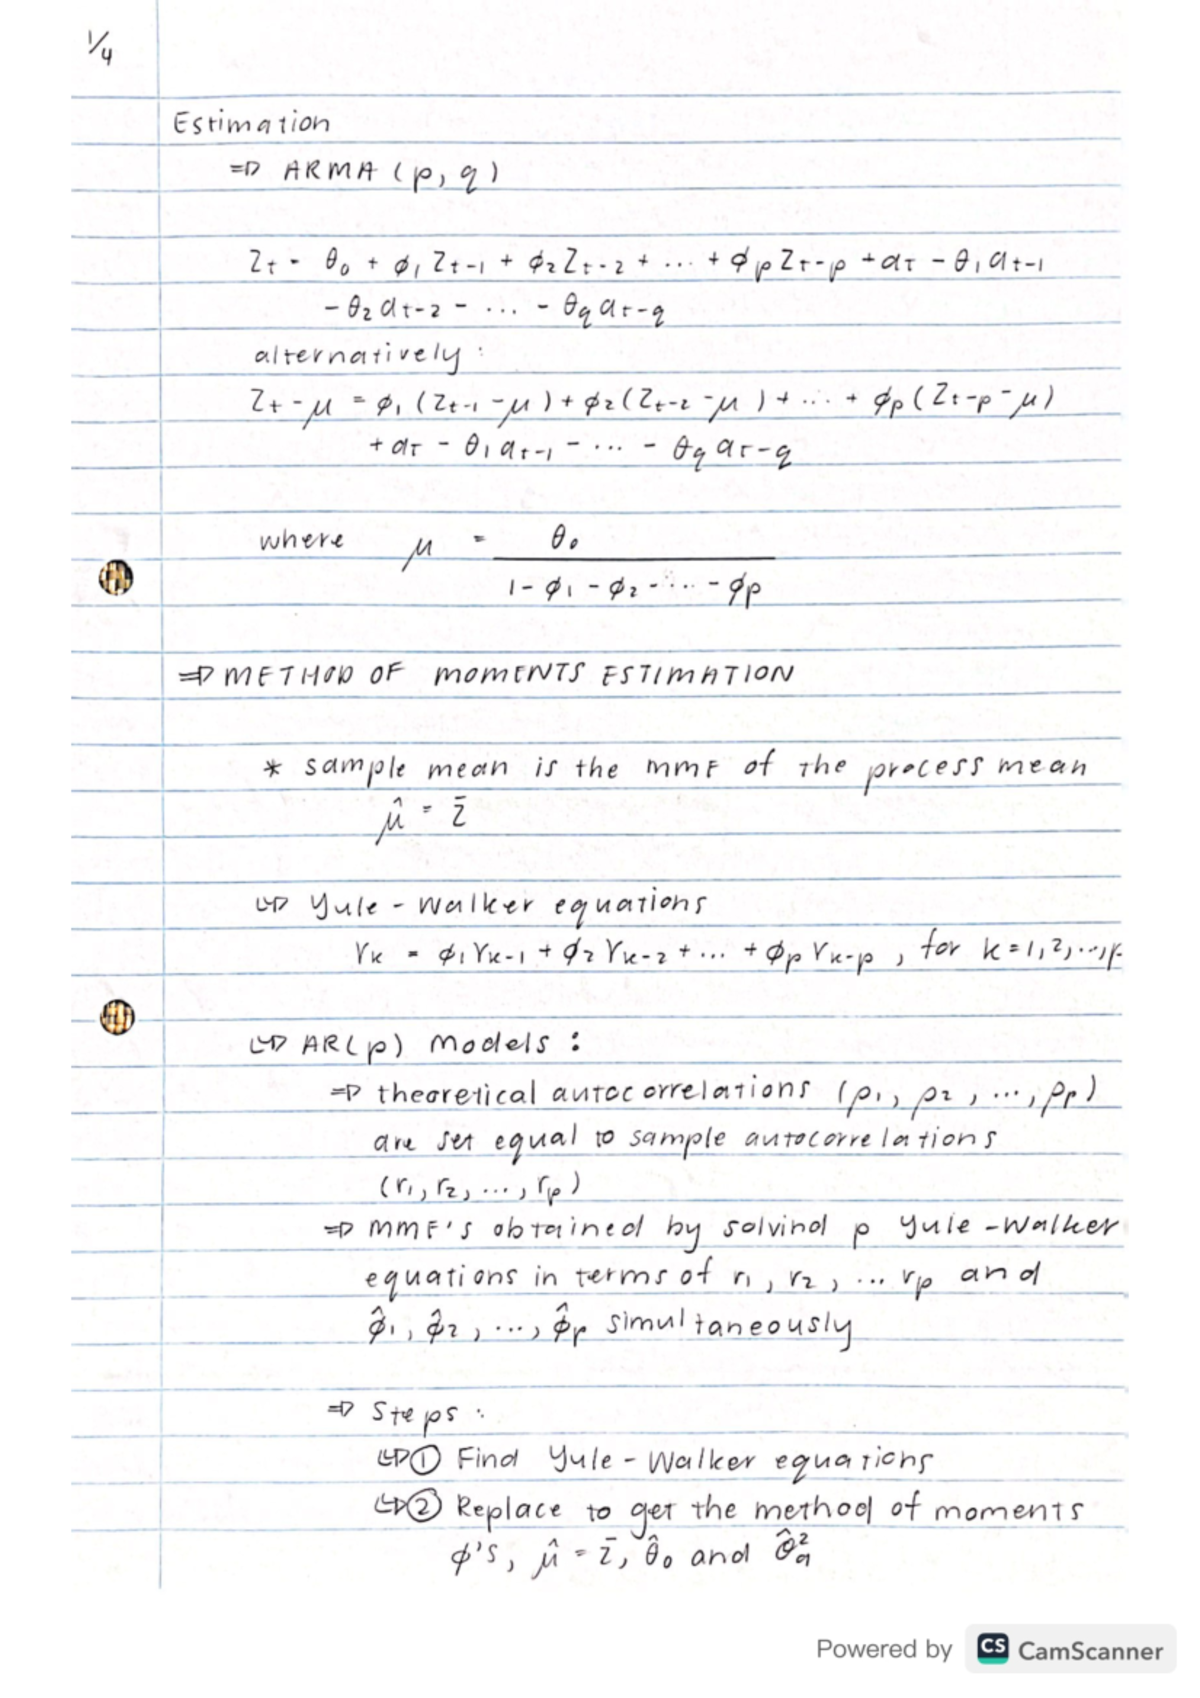 1/4
Estimation
⇒ ARMA (p, q)
Zt = θ0 + ϕ1 Zt-1 + ϕ2 Zt-2 + ... + ϕp Zt-p + at - θ1 at-1
- θ2 at-2 - ... - θq at-q
alternatively :
Zt - μ = ϕ1 (Zt-1 - μ) + ϕ2 (Zt-2 - μ) + ... + ϕp (Zt-p - μ)
+ at - θ1 at-1 - ... - θq at-q
where μ = θ0 / (1 - ϕ1 - ϕ2 - ... - ϕp)
⇒ METHOD OF MOMENTS ESTIMATION
* sample mean is the MME of the process mean
μ̂ = z̄
↳ Yule - Walker equations
γk = ϕ1 γk-1 + ϕ2 γk-2 + ... + ϕp γk-p , for k = 1, 2, ..., p
↳ AR(p) models :
⇒ theoretical autocorrelations (ρ1, ρ2, ..., ρp)
are set equal to sample autocorrelations
(r1, r2, ..., rp)
⇒ MME's obtained by solvind p Yule - Walker
equations in terms of r1, r2, ... rp and
ϕ̂1, ϕ̂2, ..., ϕ̂p simultaneously
⇒ Steps :
↳ ① Find Yule - Walker equations
↳ ② Replace to get the method of moments
ϕ's, μ̂ = z̄, θ̂0 and σ̂²a
Powered by CS CamScanner